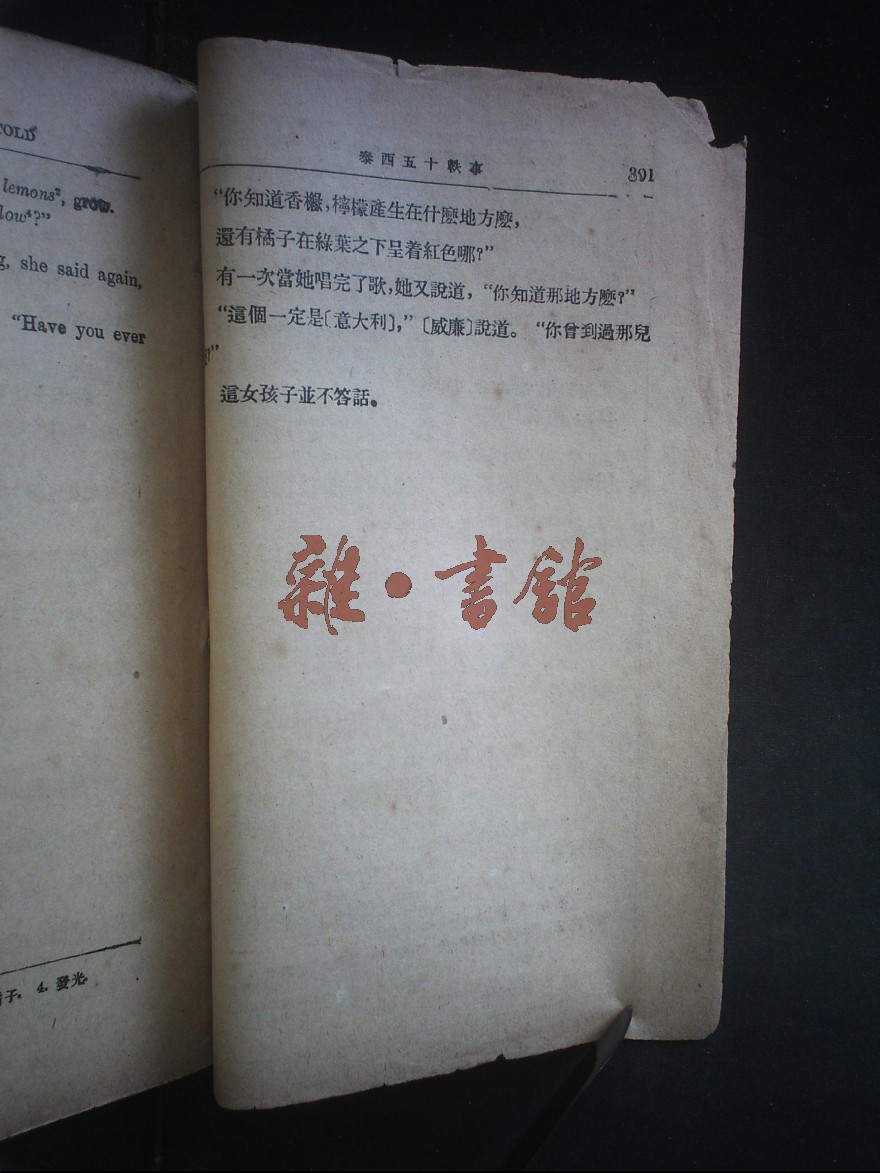 TOLD
lemons², grow.
low⁴?”
g, she said again,
“Have you ever
子. 4. 發光.
泰西五十軼事
391
“你知道香櫞,檸檬產生在什麼地方麼,
還有橘子在綠葉之下呈着紅色哪?”
有一次當她唱完了歌,她又說道, “你知道那地方麼?”
“這個一定是〔意大利〕,” 〔威廉〕說道。 “你曾到過那兒
?”
這女孩子並不答話。
雜·書館